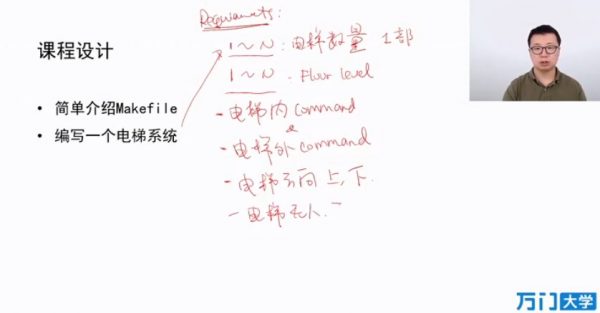 课程设计
• 简单介绍Makefile
• 编写一个电梯系统
Requirements:
1~N : 电梯数量 1部
1~N : Floor level
- 电梯内 command
&
- 电梯外 command
- 电梯方向 上, 下.
- 电梯无人.
万门大学